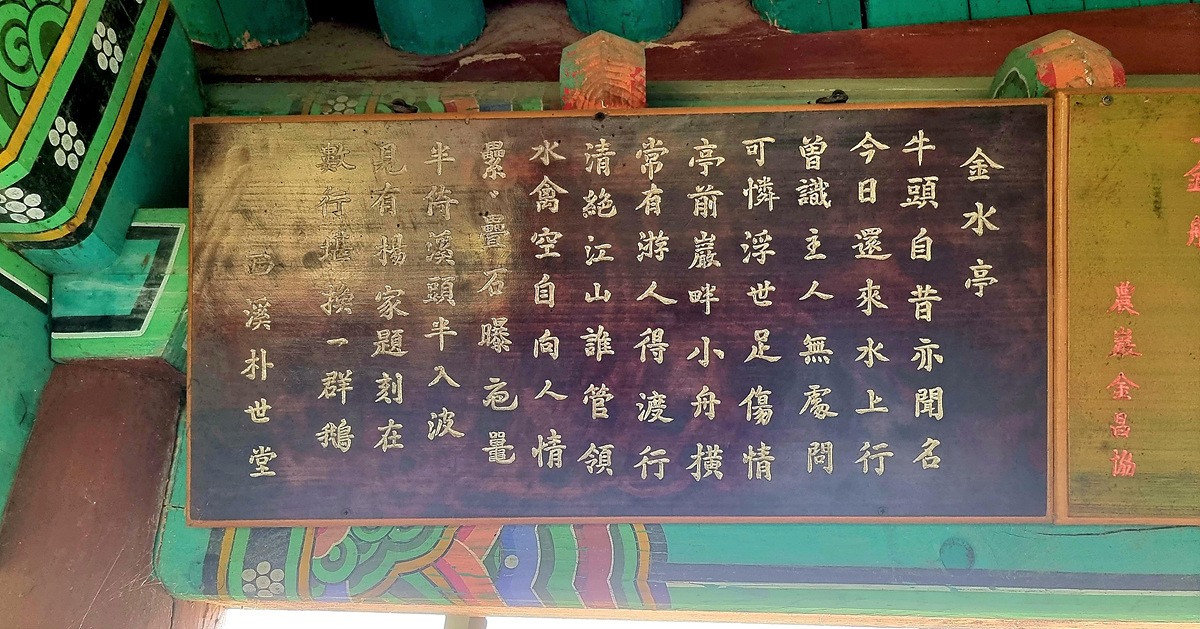 金水亭
牛頭自昔亦聞名
今日還來水上行
曾識主人無處問
可憐浮世足傷情
亭前巖畔小舟橫
常有游人得渡行
清絶江山誰管領
水禽空自向人情
纍〻疊石曝黿鼉
半倚溪頭半入波
見有揚家題刻在
數行堪換一群鵝
西溪朴世堂
金
農巖金昌協